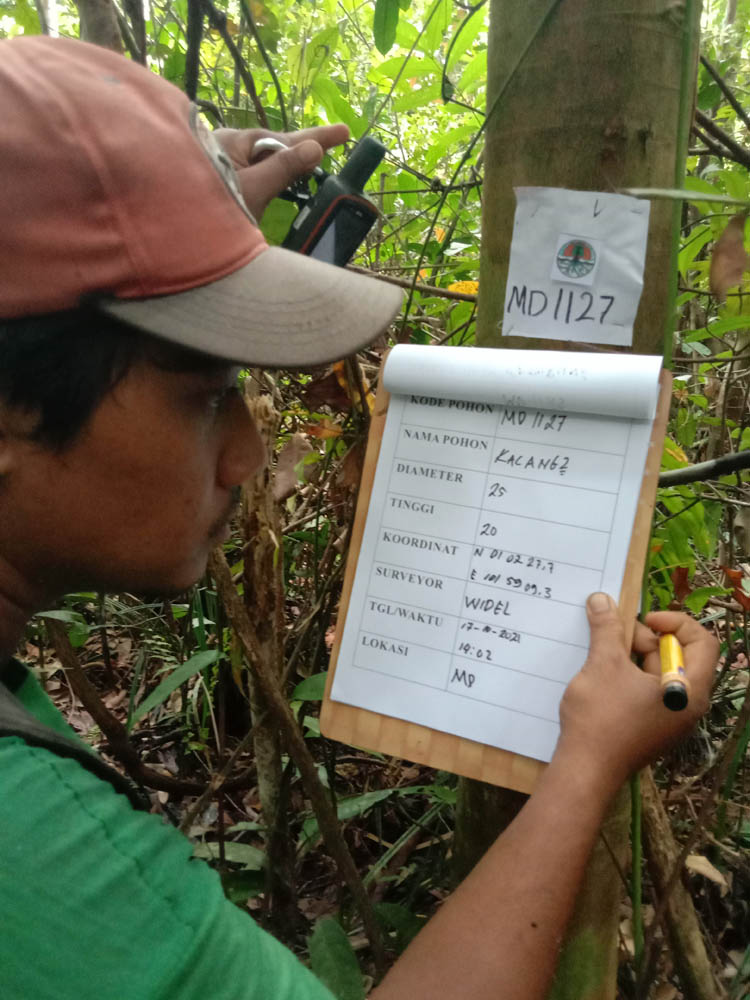 MD1127
KODE POHON MD1127
NAMA POHON KACANG2
DIAMETER 25
TINGGI 20
KOORDINAT N 01 02 27.7
E 101 59 09.3
SURVEYOR WIDEL
TGL/WAKTU 17-10-2021
14:02
LOKASI MD